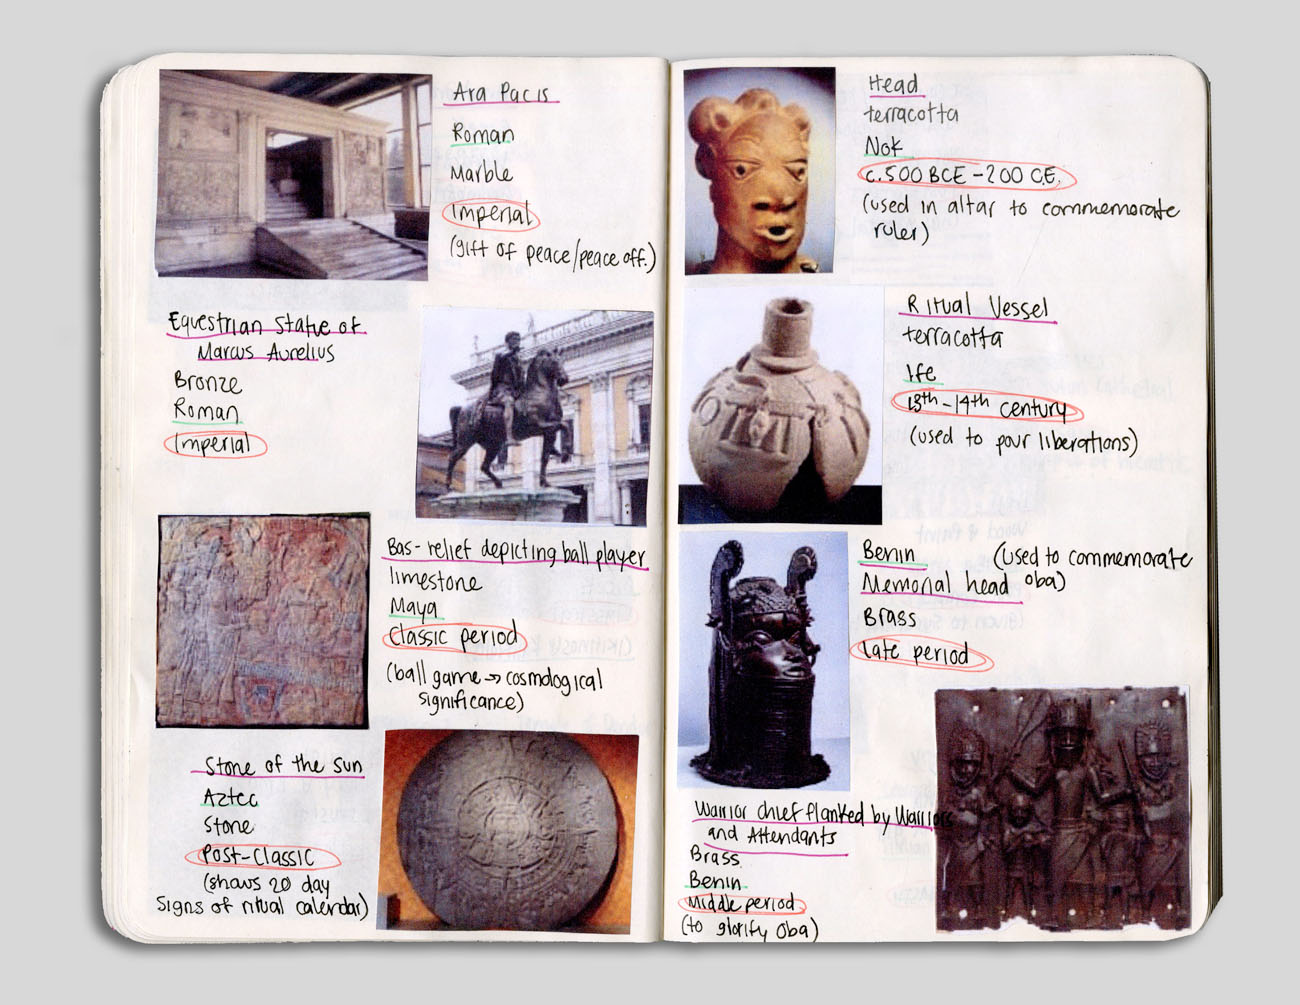 Ara Pacis
Roman
Marble
Imperial
(gift of peace/peace off.)
Equestrian Statue of
Marcus Aurelius
Bronze
Roman
Imperial
Bas-relief depicting ball player
limestone
Maya
Classic period
(ball game → cosmological
significance)
Stone of the Sun
Aztec
Stone
Post-Classic
(shows 20 day
signs of ritual calendar)
Head
terracotta
Nok
c.500 BCE - 200 C.E.
(used in altar to commemorate
ruler)
Ritual Vessel
terracotta
Ife
13th-14th century
(used to pour liberations)
Benin (used to commemorate
Memorial head oba)
Brass
late period
Warrior chief flanked by Warriors
and Attendants
Brass
Benin
Middle period
(to glorify Oba)